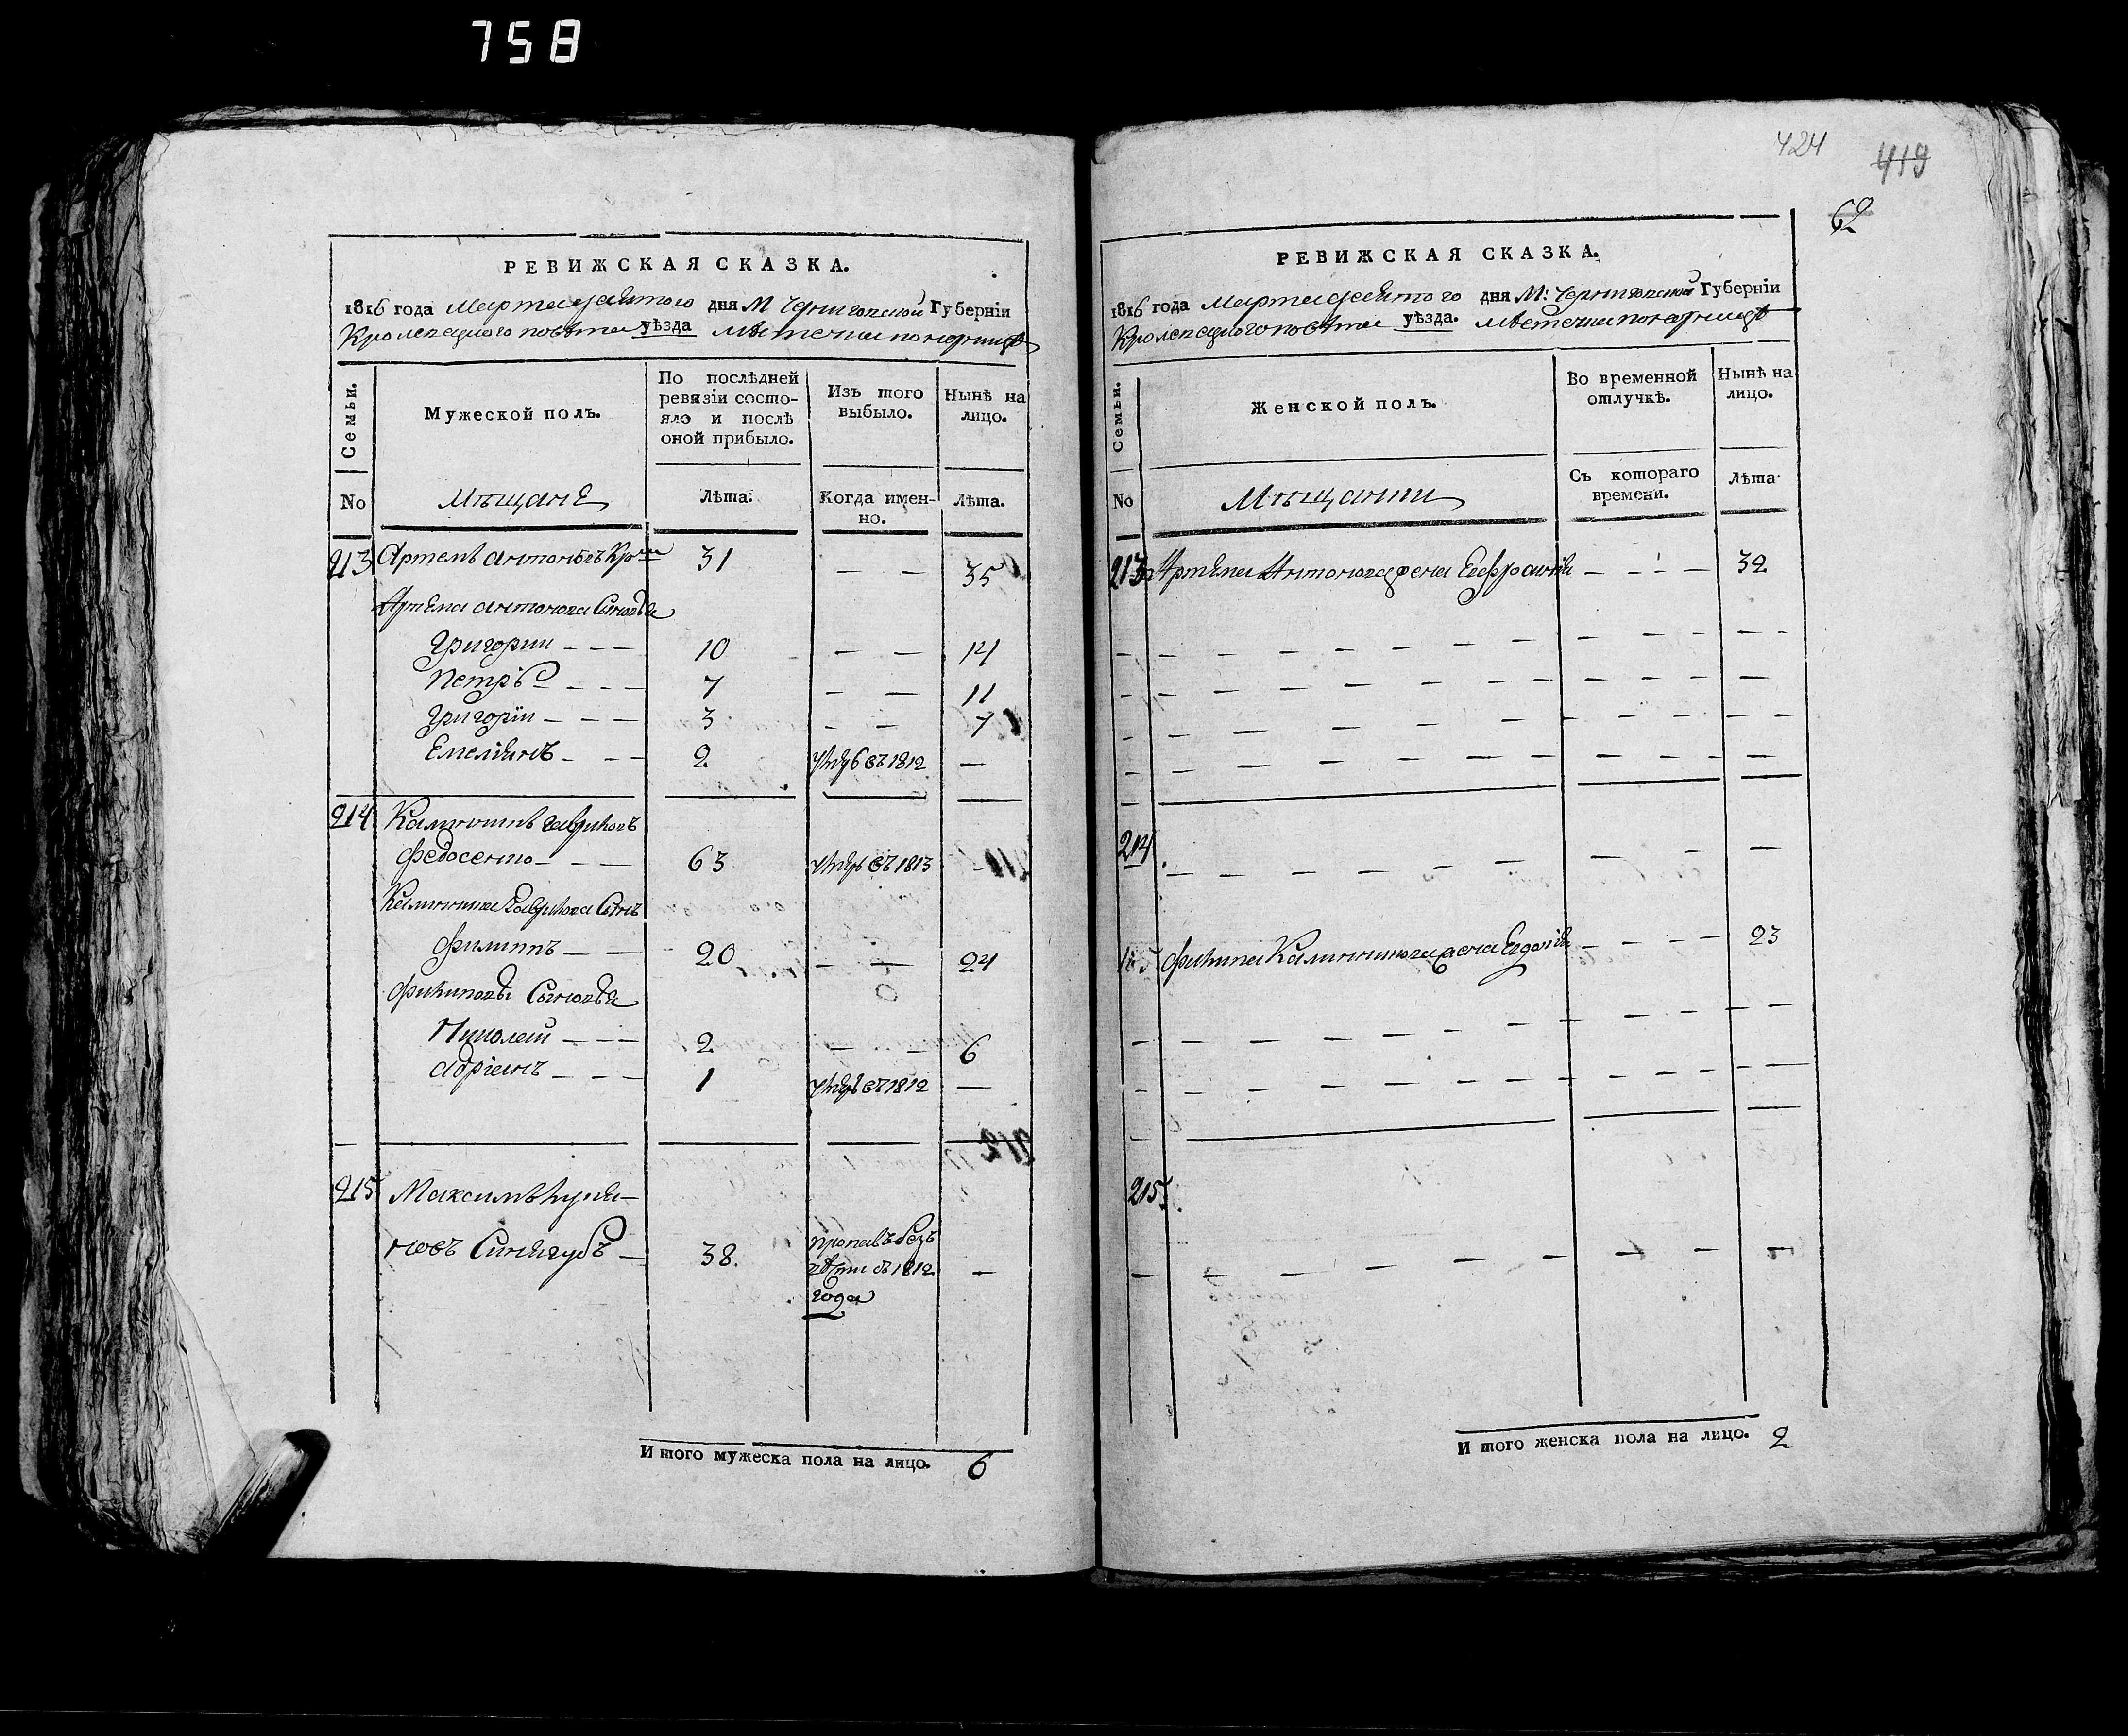 758
РЕВИЖСКАЯ СКАЗКА.
1816 года Марта девятого дня М Черниговской Губерніи
Кролевецкого повѣта уѣзда мѣстечка понорницѣ
Семьи.
Мужеской полъ.
По послѣдней ревизіи состо-
яло и послѣ
оной прибыло.
Изъ того
выбыло.
Нынѣ на
лицо.
No
Мѣщане
Лѣта.
Когда имен-
но.
Лѣта.
213 Артемъ Антоновъ 31 — — 35
Артема Антонова Сыновья
Григории — — — 10 — — 14
Петръ — — — 7 — — 11
Григоріи — — — 3 — — 7
Емеліянъ — — — 2 въ 1812 —
214 Калиникъ Гавриловъ
Федосенко — — — 63 въ 1813
Калиника Гаврилова Сынъ
Филиппъ — — 20 — — 24
Филиповы Сыновья
Николай — — — 2 — — 6
Адріянъ — — — 1 въ 1812 —
215 Максимъ
новъ Синягубъ — 38. пропавъ безъ
вѣсти въ 1812 —
года
И того мужеска пола на лицо. 6
424
419
62
РЕВИЖСКАЯ СКАЗКА.
1816 года Марта девятого дня М: Черниговской Губерніи
Кролевецкого повѣта уѣзда. мѣстечка понорницѣ
Семьи.
Женской полъ.
Во временной
отлучкѣ.
Нынѣ на
лицо.
No
Мѣщанки
Съ котораго
времени.
Лѣта.
213 Артема Антонова жена Евфросинія — — — 32
214.
Филипа Калиникова жена Евдокія — — — — 23
215.
И того женска пола на лицо. 2